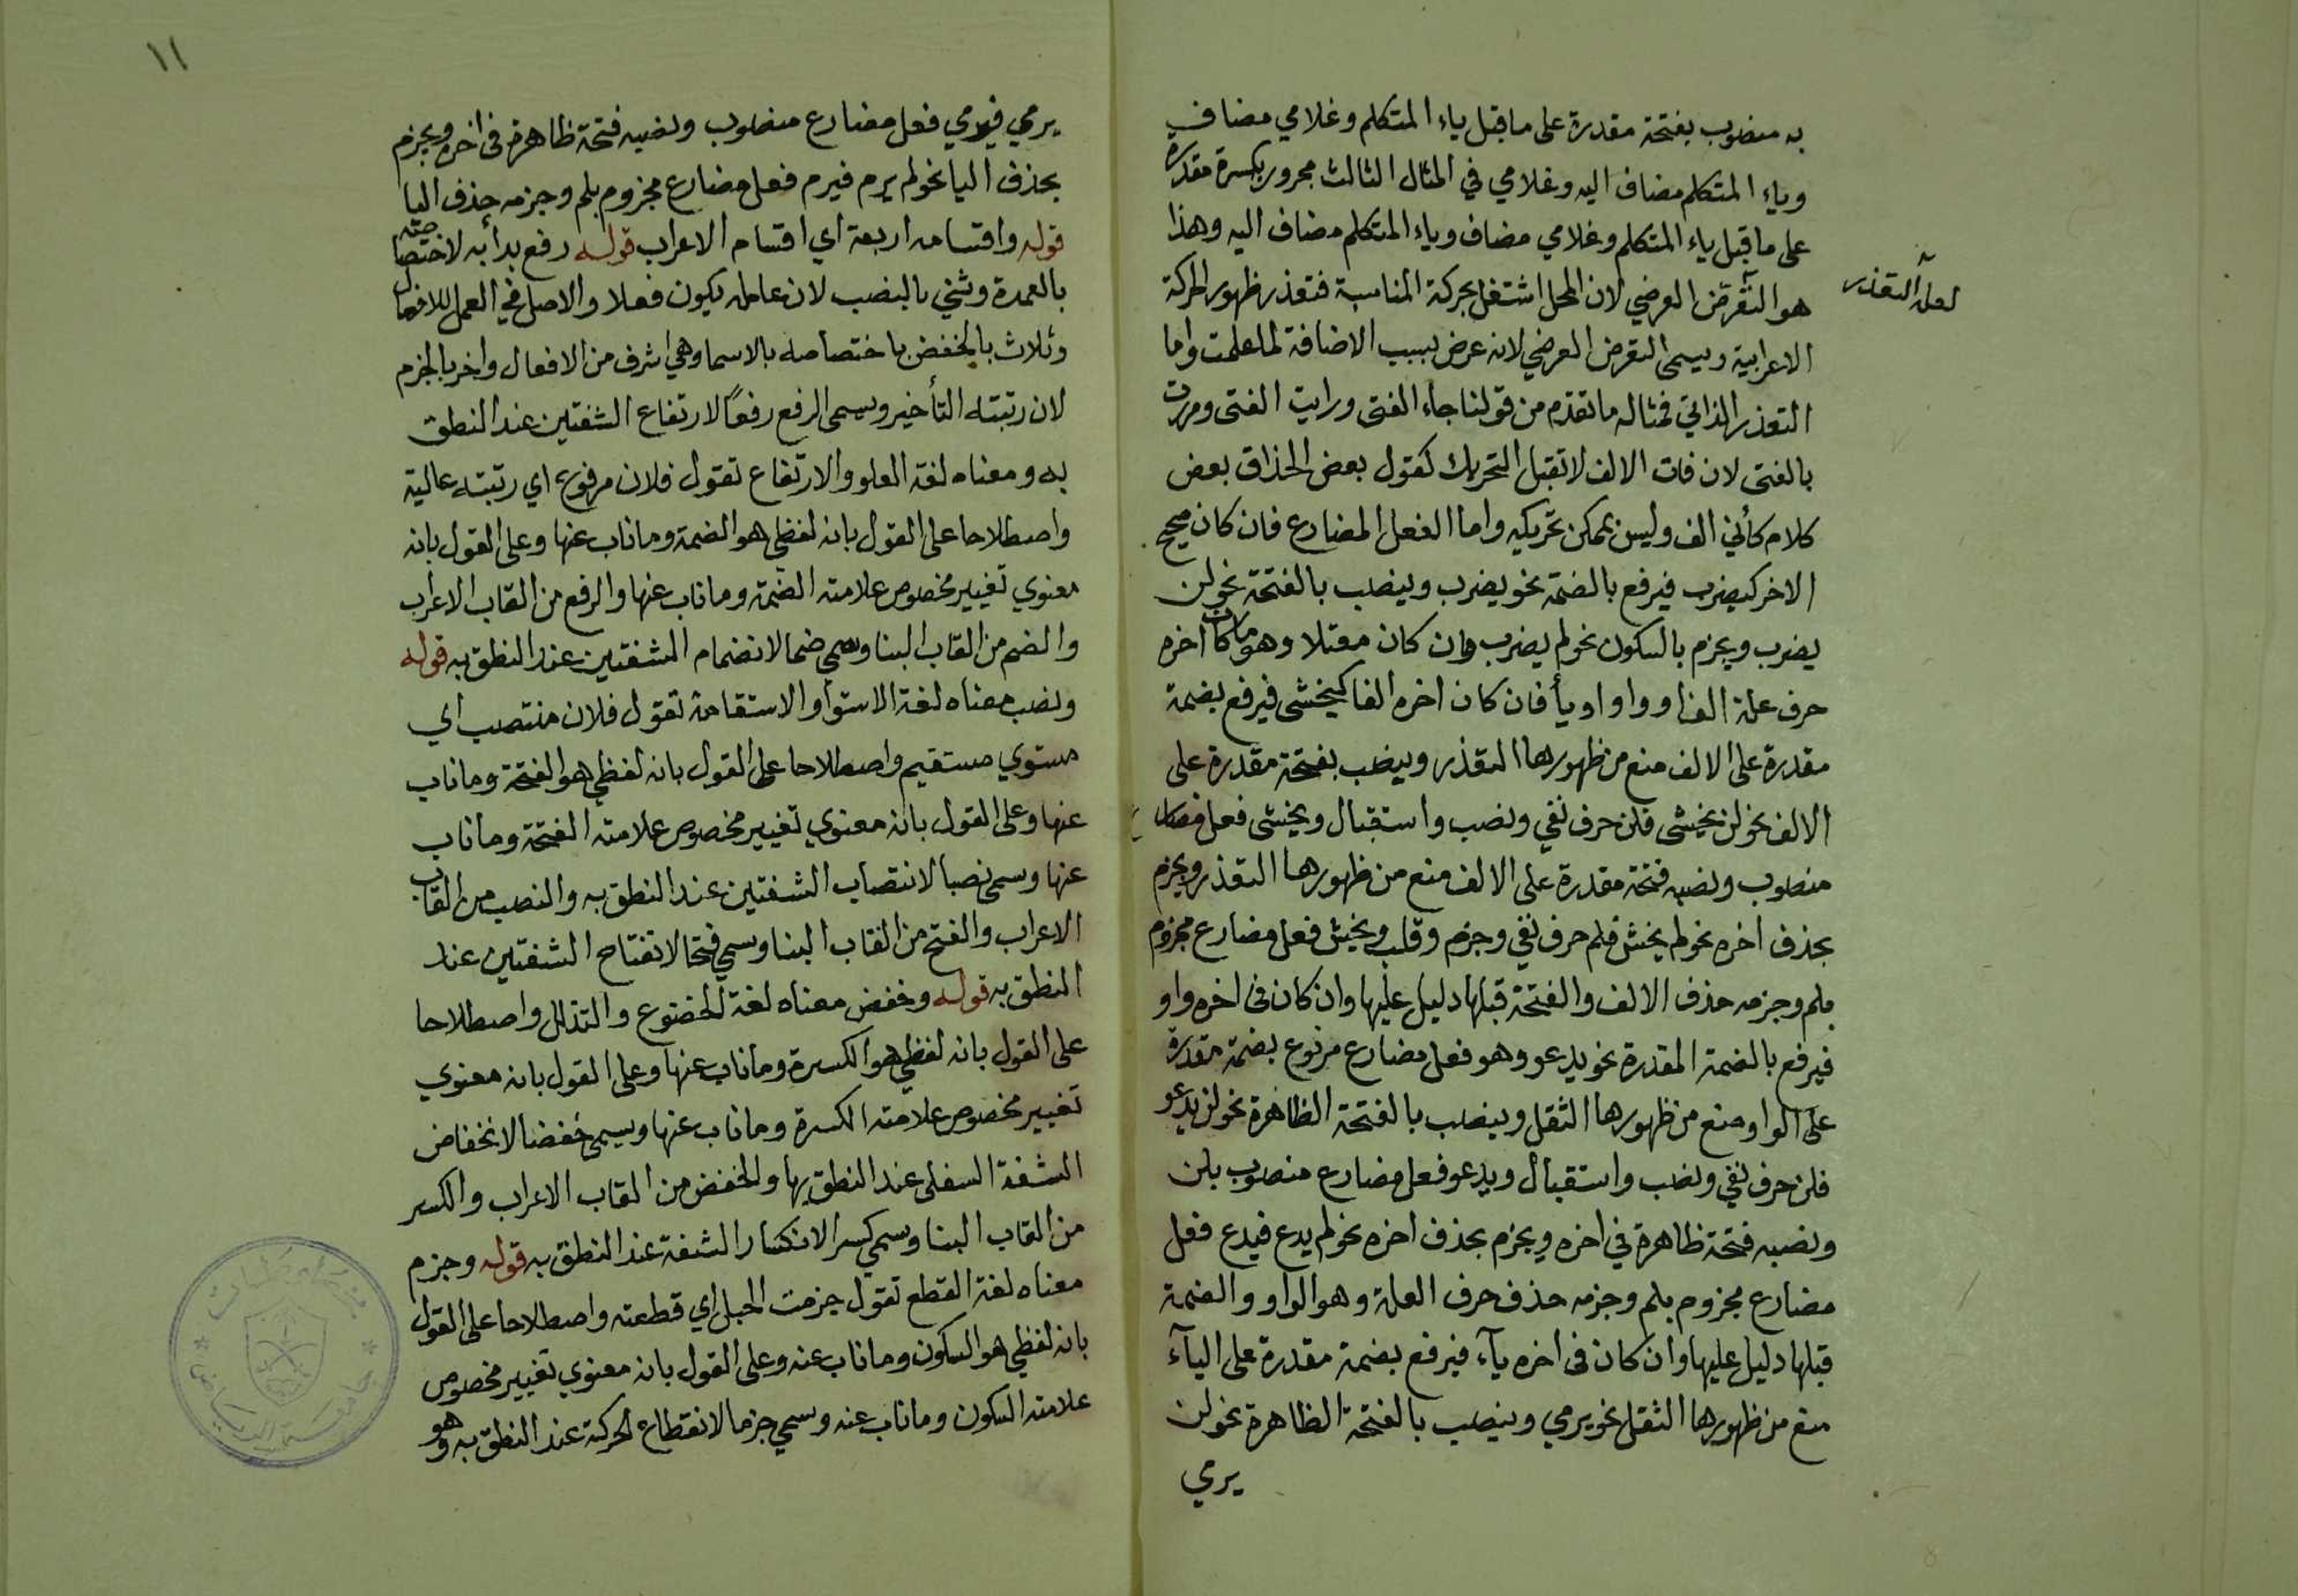 به منصوب بفتحة مقدرة على ما قبل ياء المتكلم وغلامي مضاف
وياء المتكلم مضاف اليه وغلامي في المثال الثالث مجرور بكسرة مقدرة
على ما قبل ياء المتكلم وغلامي مضاف وياء المتكلم مضاف اليه وهذا
هو التعرض العرضي لان المحل اشتغل بحركة المناسبة فتعذر ظهور الحركة
لعله التعذر
الاعرابية ويسمى التعرض العرضي لانه عرض بسبب الاضافة لما علمت واما
التعذر الذاتي فمثاله ما تقدم من قولنا جاء الفتى ورايت الفتى ومررت
بالفتى لان ذات الالف لا تقبل التحريك كقول بعض الحذاق بعض
كلام كأني الف وليس يمكن تحريكه واما الفعل المضارع فان كان صحيح
الاخر كيضرب فيرفع بالضمة نحو يضرب وينصب بالفتحة نحو لن
يضرب ويجزم بالسكون نحو لم يضرب وان كان معتلا وهو ما كان اخره
حرف علة الفا او واوا او يأ فان كان اخره الفا كيخشى فيرفع بضمة
مقدرة على الالف منع من ظهورها التعذر وينصب بفتحة مقدرة على
الالف نحو لن يخشى فلن حرف نفي ونصب واستقبال ويخشى فعل مضارع
منصوب ونصبه فتحة مقدرة على الالف منع من ظهورها التعذر ويجزم
بحذف اخره نحو لم يخش فلم حرف نفي وجزم وقلب ويخش فعل مضارع مجزوم
بلم وجزمه حذف الالف والفتحة قبلها دليل عليها وان كان في اخره واو
فيرفع بالضمة المقدرة نحو يدعو وهو فعل مضارع مرفوع بضمة مقدرة
على الواو منع من ظهورها الثقل وينصب بالفتحة الظاهرة نحو لن يدعو
فلن حرف نفي ونصب واستقبال ويدعو فعل مضارع منصوب بلن
ونصبه فتحة ظاهرة في اخره ويجزم بحذف اخره نحو لم يدع فيدع فعل
مضارع مجزوم بلم وجزمه حذف حرف العلة وهو الواو والضمة
قبلها دليل عليها وان كان في اخره يآء فيرفع بضمة مقدرة على اليآء
منع من ظهورها الثقل نحو يرمي وينصب بالفتحة الظاهرة نحو لن
يرمي
١١
يرمي فيرمي فعل مضارع منصوب ونصبه فتحة ظاهرة في اخره ويجزم
بحذف اليا نحو لم يرم فيرم فعل مضارع مجزوم بلم وجزمه حذف اليا
قوله واقسامه اربعة اي اقسام الاعراب قوله رفع بدأ به لاختصاصه
بالعمدة وثنى بالنصب لان عامله يكون فعلا والاصل في العمل للافعال
وثلاث بالخفض باختصاصه بالاسما وهي اشرف من الافعال واخر بالجزم
لان رتبته التأخير ويسمى الرفع رفعًا لارتفاع الشفتين عند النطق
به ومعناه لغة العلو والارتفاع تقول فلان مرفوع اي رتبته عالية
واصطلاحا على القول بانه لفظي هو الضمة وما ناب عنها وعلى القول بانه
معنوي تغيير مخصوص علامته الضمة وما ناب عنها والرفع من القاب الاعراب
والضم من القاب البنا وسمي ضما لانضمام الشفتين عند النطق به قوله
ونصب معناه لغة الاستوا والاستقامة تقول فلان منتصب اي
مستوي مستقيم واصطلاحا على القول بانه لفظي هو الفتحة وما ناب
عنها وعلى القول بانه معنوي تغيير مخصوص علامته الفتحة وما ناب
عنها وسمي نصبا لانتصاب الشفتين عند النطق به والنصب من القاب
الاعراب والفتح من القاب البنا وسمي فتحا لانفتاح الشفتين عند
النطق به قوله وخفض معناه لغة الخضوع والتذلل واصطلاحا
على القول بانه لفظي هو الكسرة وما ناب عنها وعلى القول بانه معنوي
تغيير مخصوص علامته الكسرة وما ناب عنها ويسمى خفضا لانخفاض
الشفة السفلى عند النطق بها والخفض من القاب الاعراب والكسر
من القاب البنا وسمي كسرا لانكسار الشفة عند النطق به قوله وجزم
معناه لغة القطع تقول جزمت الحبل اي قطعته واصطلاحا على القول
بانه لفظي هو السكون وما ناب عنه وعلى القول بانه معنوي تغيير مخصوص
علامته السكون وما ناب عنه وسمي جزما لانقطاع الحركة عند النطق به وهو
جامعة الرياض